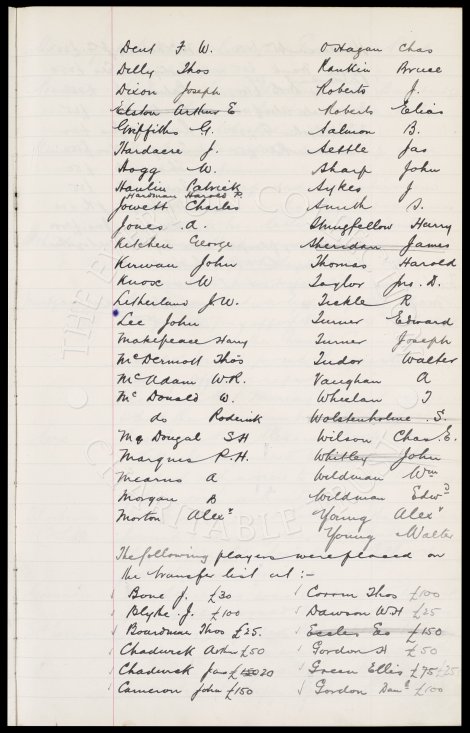 Dent F. W.
Dilly Thos
Dixon Joseph
Elston Arthur E
Griffiths G.
Hardacre J.
Hogg W.
Haulin Patrick
Hardman Harold P.
Jowett Charles
Jones A.
Kitchen George
Kirwan John
Knox W
Litherland J.W.
Lee John
Makepeace Harry
McDermott Thos
McAdam W.R.
McDonald W.
do Roderick
McDougal S H
Marques R.H.
Mearns A
Morgan B
Morton Alexr
O'Hagan Chas
Rankin Bruce
Roberts J.
Roberts Elias
Salmon B.
Settle Jas
Sharp John
Sykes J
Smith S.
Stringfellow Harry
Sheridan James
Thomas Harold
Taylor Jno. D.
Tickle R
Turner Edward
Turner Joseph
Tudor Walter
Vaughan A
Whelan T
Wolstenholme S.
Wilson Chas E.
Whitley John
Wildman Wm
Wildman Edwd
Young Alexr
Young Walter
The following players were placed on
the transfer list at :-
Bone J. £30
Blyke J. £100
Boardman Thos £25.
Chadwick Arthr £50
Chadwick Jas £150 20
Cameron John £150
Corrin Thos £100
Dawson W H £25
Eccles Eo £150
Gordon H £50
Green Ellis £75 £25
Gordon Danl £100
THE
CHARITABLE